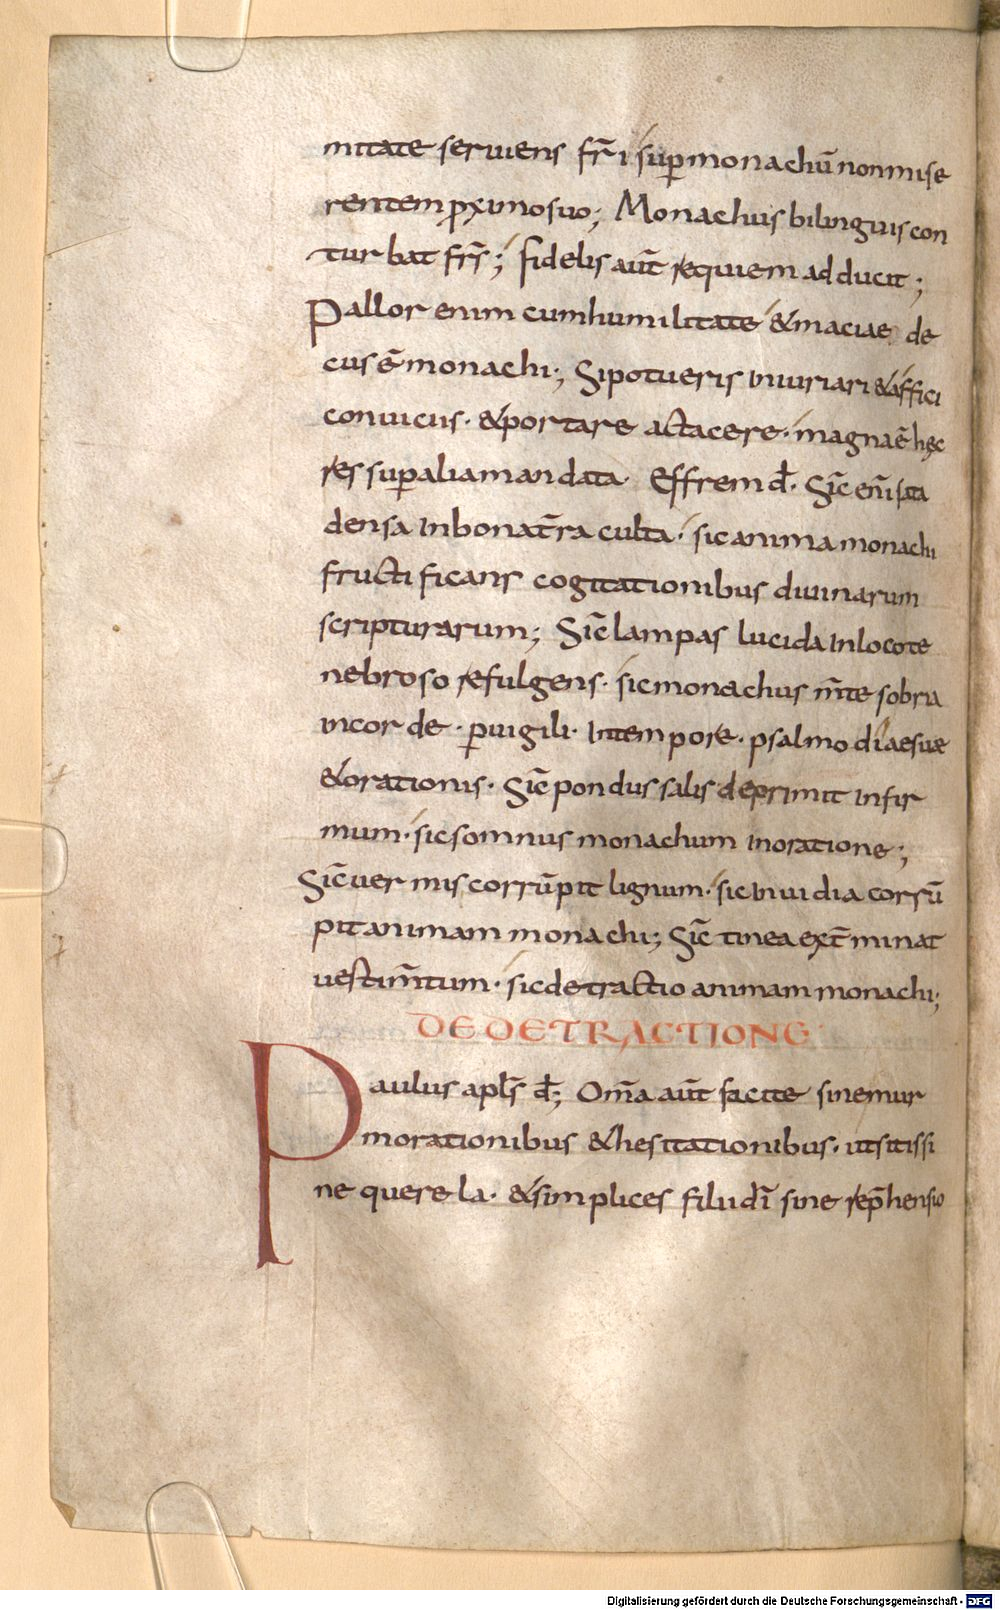 mitate seruiens fr̄i supmonachū nonmise
rentem pximosuo; Monachus bilinguis con
turbat frs̄; fidelis aut̄ requiem adducit;
Pallor enim cumhumilitate &maciae de
cus ē monachi; Sipotueris iniuriari &affici
conuicus · &portare actacere · magna ē hęc
res sup alia mandata · Effrem d̄ · Sic̄ enī sata
densa Inbonat̄ra culta · sic anima monachi
fructificans cogitationibus diuinarum
scripturarum; Sic̄ lampas lucida Inlocote
nebroso refulgens · sic monachus m̄te sobria
incorde · puigili · Intempore · psalmodiaesuae
&orationis · Sic̄ pondus salis deprimit infir
mum · sic somnus monachum inoratione;
Sic̄ uermis corrūpit lignum · sic inuidia corrū
pit animam monachi; Sic̄ tinea ext̄minat
uestim̄tum · sic detractio animam monachi;
DE DETRACTIONE
Paulus apls̄ d̄; Om̄a aut̄ facite sinemur
morationibus &hesitationibus · utsitissi
ne querela · &simplices filiidī sine rep̄hensio
Digitalisierung gefördert durch die Deutsche Forschungsgemeinschaft - DFG